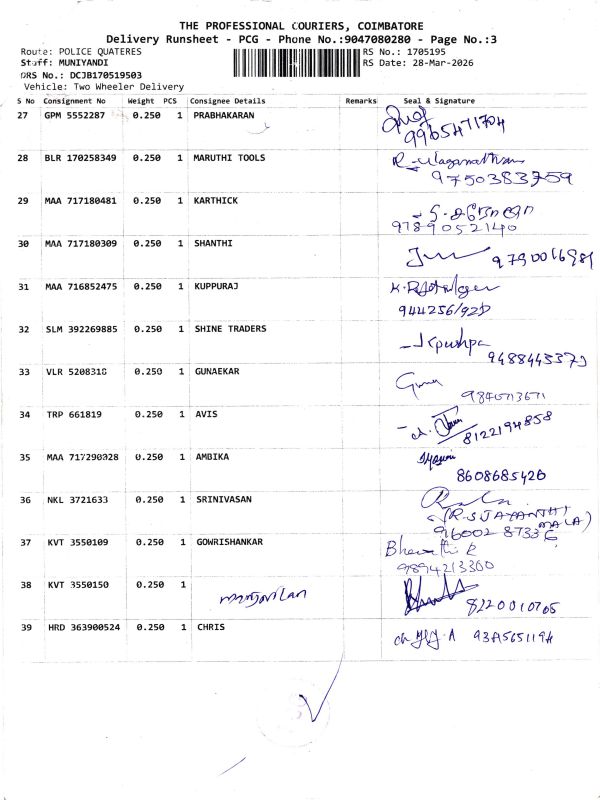 THE PROFESSIONAL COURIERS, COIMBATORE
Delivery Runsheet - PCG - Phone No.:9047080280 - Page No.:3
Route: POLICE QUATERES RS No.: 1705195
Stuff: MUNIYANDI RS Date: 28-Mar-2026
DRS No.: DCJB170519503
Vehicle: Two Wheeler Delivery
S No Consignment No Weight PCS Consignee Details Remarks Seal & Signature
27 GPM 5552287 0.250 1 PRABHAKARAN
9965471704
28 BLR 170258349 0.250 1 MARUTHI TOOLS
9750383759
29 MAA 717180481 0.250 1 KARTHICK
9789052140
30 MAA 717180309 0.250 1 SHANTHI
9790016981
31 MAA 716852475 0.250 1 KUPPURAJ
32 SLM 392269885 0.250 1 SHINE TRADERS
J Kpushpa
33 VLR 5208318 0.250 1 GUNAEKAR
Guna
34 TRP 661819 0.250 1 AVIS
8122194858
35 MAA 717290828 0.250 1 AMBIKA
8608685420
36 NKL 3721633 0.250 1 SRINIVASAN
(R-S JAYANTHI MALA)
96002 87336
37 KVT 3550109 0.250 1 GOWRISHANKAR
Bharathi R
9894213300
38 KVT 3550150 0.250 1
8220010705
39 HRD 363900524 0.250 1 CHRIS